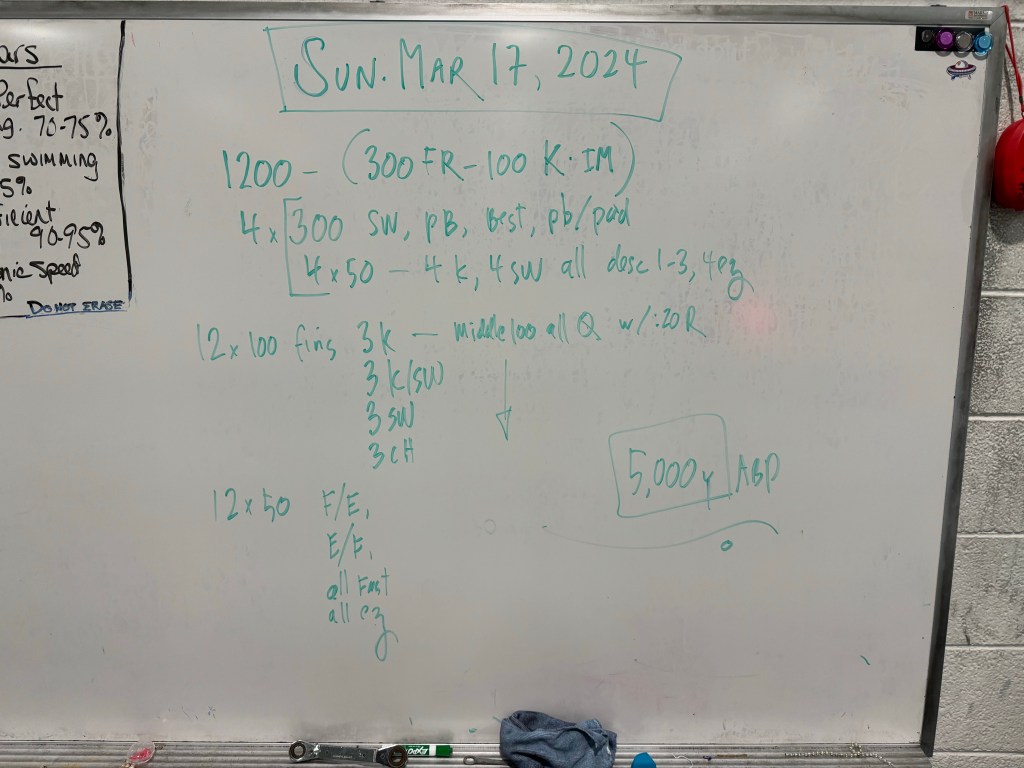 ars
Perfect
g. 70-75%
SWIMMING
5%
icient
90-95%
nic Speed
%
DO NOT ERASE
SUN. MAR 17, 2024
1200 - (300 FR - 100 K·IM)
4 x [300 SW, PB, Best, pb/pad
4 x 50 - 4 K, 4 SW all desc 1-3, 4 ez
12 x 100 fins 3 K - middle 100 all Q w/ :20 R
3 K/SW
3 SW
3 CH
5,000 y ABP
12 x 50 F/E,
E/F,
all Fast
all ez
EXPO